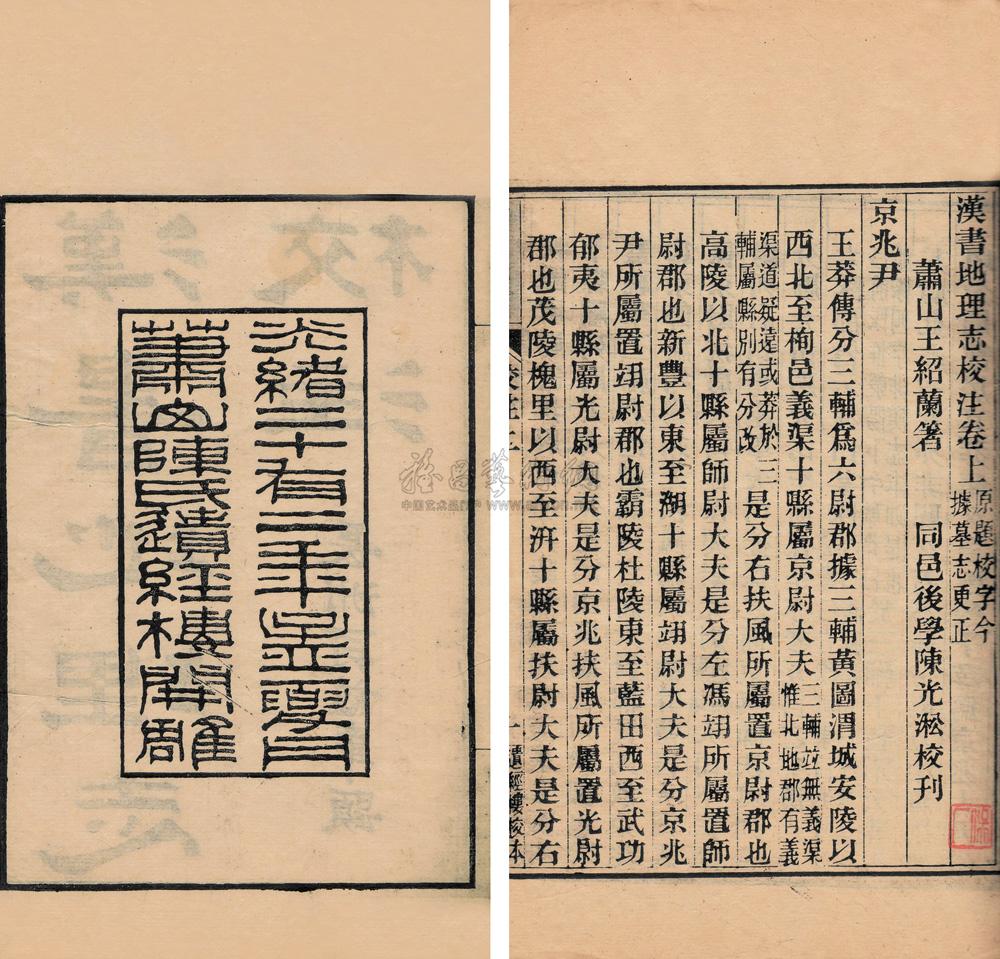 光緒二十有二年孟夏月
蕭山陳氏遺經樓開雕
漢書地理志校注卷上 原題校字今
據墓志更正
蕭山王紹蘭箸 同邑後學陳光淞校刊
京兆尹
王莽傳分三輔爲六尉郡據三輔黃圖渭城安陵以
西北至栒邑義渠十縣屬京尉大夫 三輔竝無義渠
惟北地郡有義
渠道疑遠或莽於三
輔屬縣別有分改 是分右扶風所屬置京尉郡也
高陵以北十縣屬師尉大夫是分左馮翊所屬置師
尉郡也新豐以東至湖十縣屬翊尉大夫是分京兆
尹所屬置翊尉郡也霸陵杜陵東至藍田西至武功
郁夷十縣屬光尉大夫是分京兆扶風所屬置光尉
郡也茂陵槐里以西至汧十縣屬扶尉大夫是分右
一 遺經樓校本